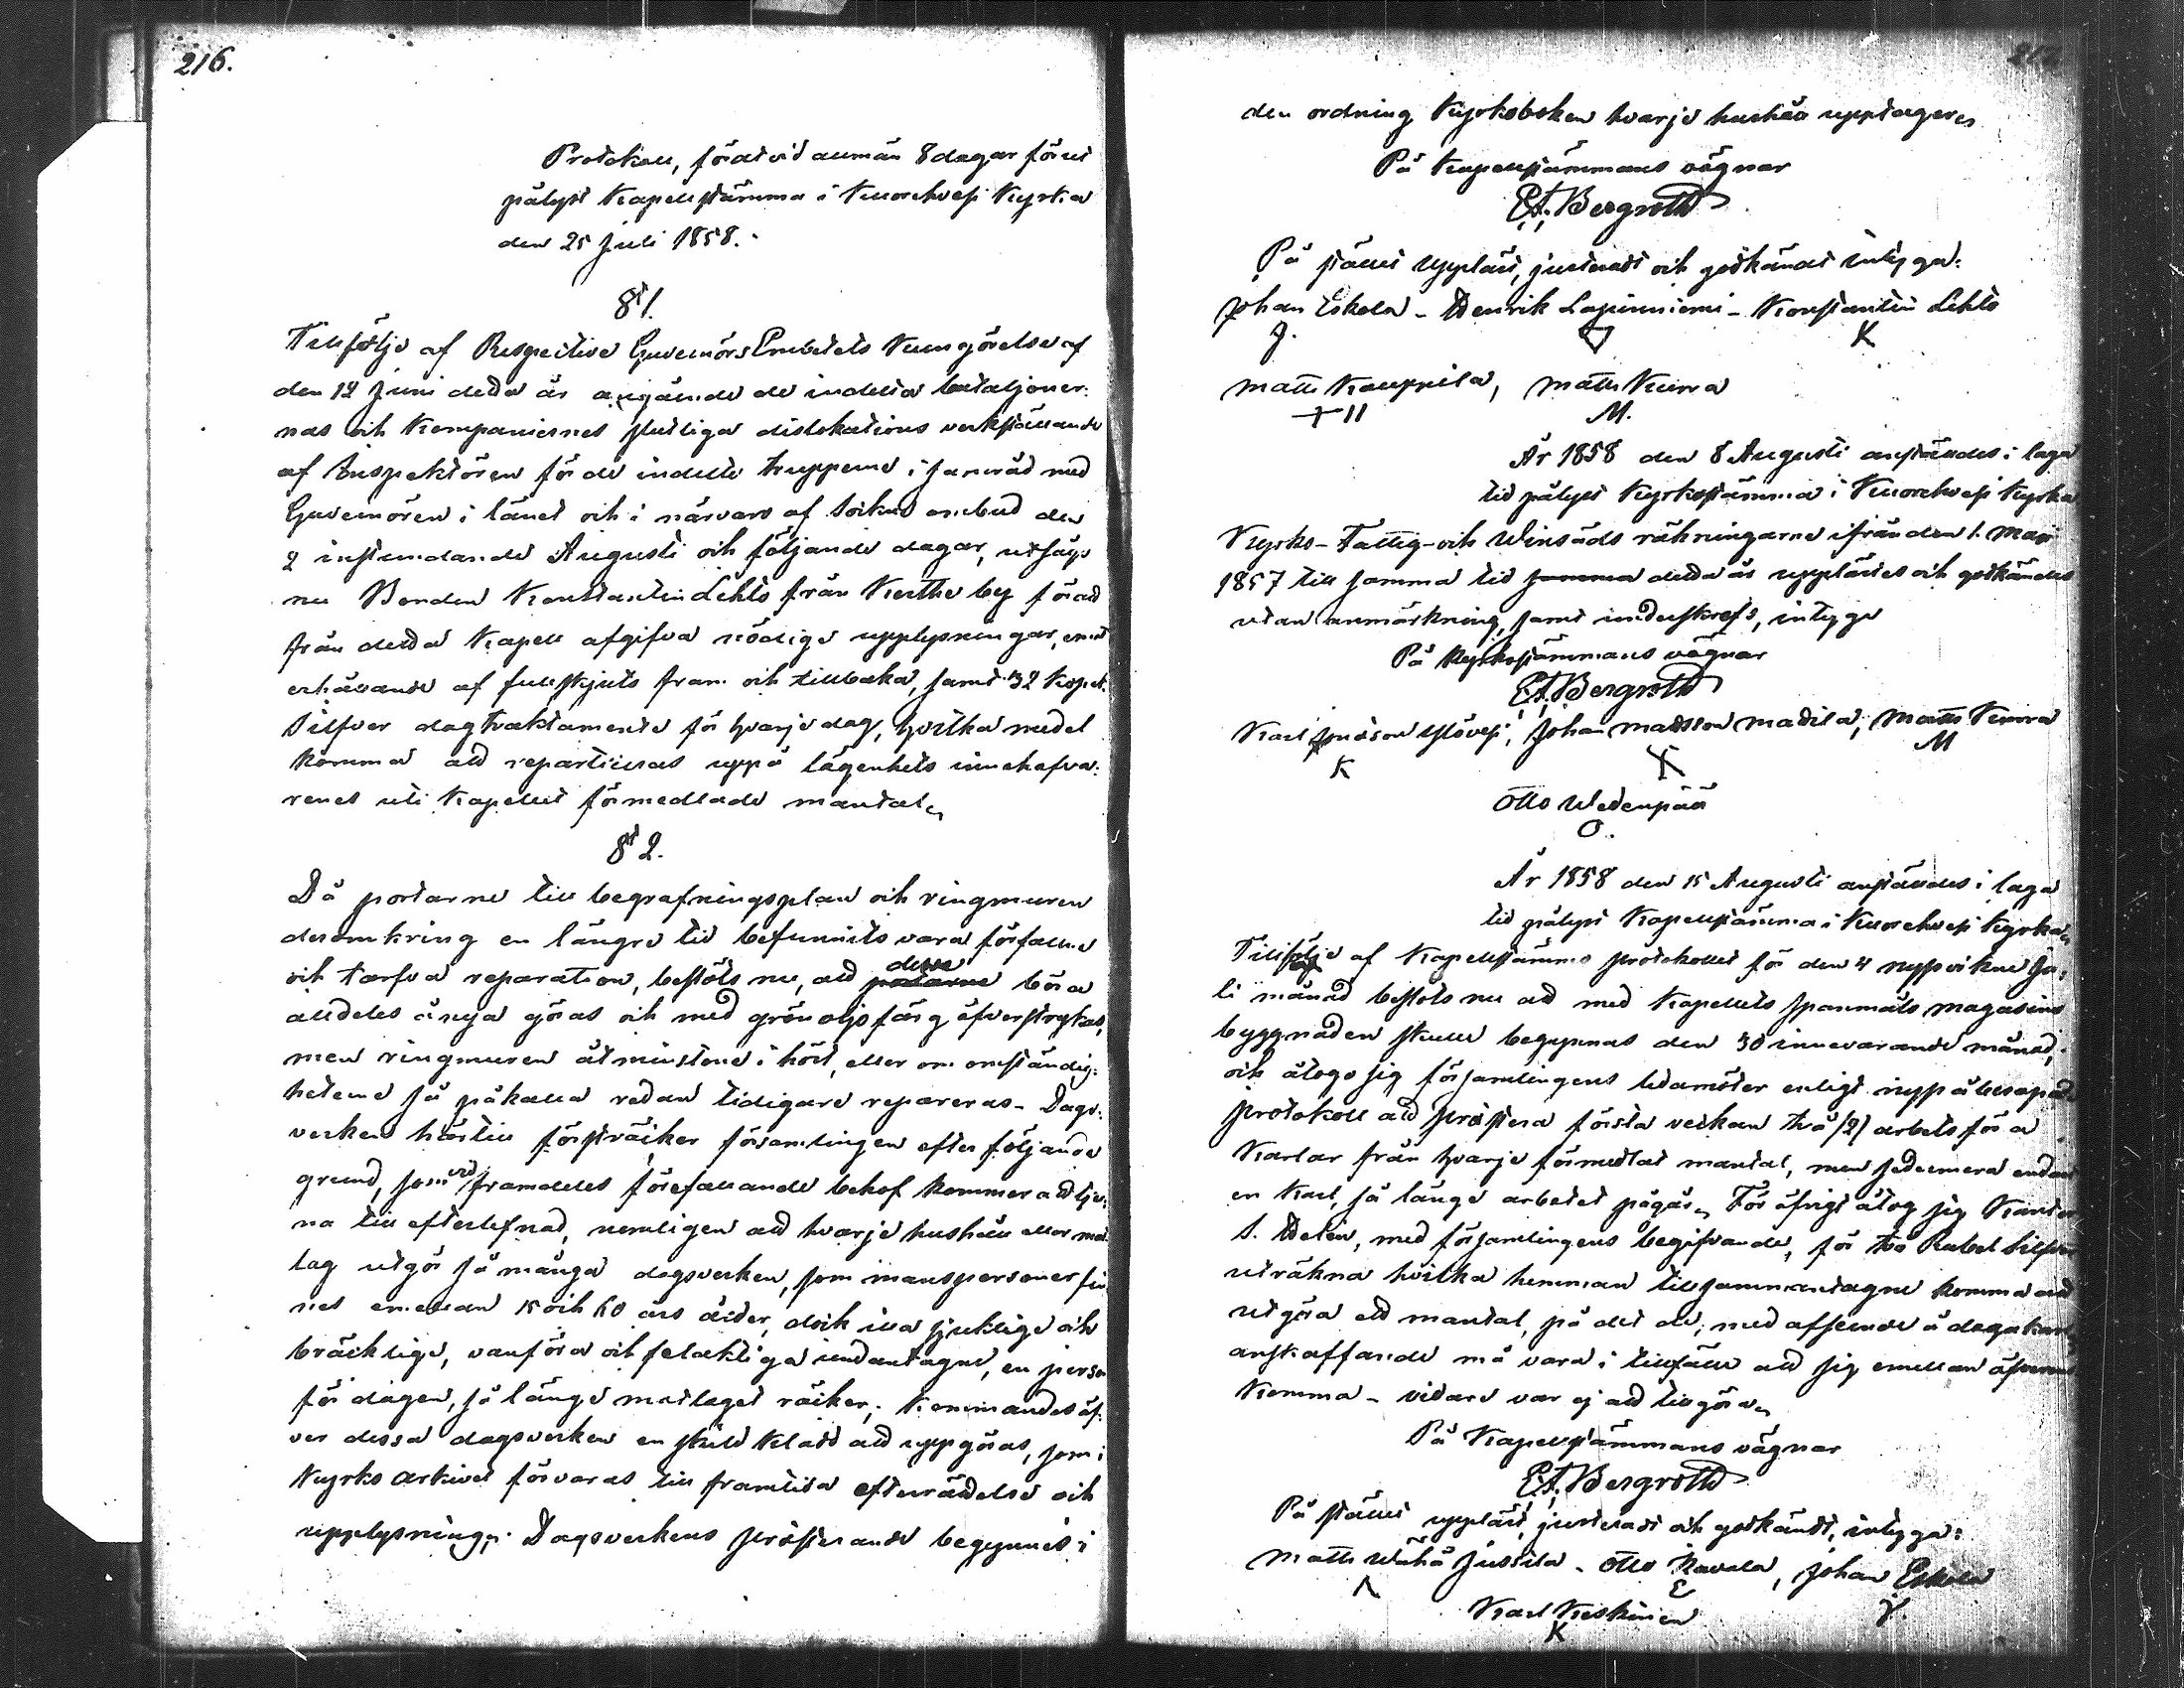 216.
Protokoll, fördt vid allmän 8 dagar förut
pålyst Kapellstämma i Kuorehvesi Kyrka
den 25 Juli 1858.
§ 1.
Tillfölje af Respective Guvernörs Embetets Kungörelse af
den 12 Juni detta år angående de indelta bataljoner-
nas och Kompaniernes slutliga dislokations verkställande
af Inspektören för de indelte trupperne i samråd med
Guvernören i länet och i närvaro af Sockne ombud den
2 instundande Augusti och följande dagar, utsågs
nu Bonden Konstantin Lehto från Kertte by för att
från detta Kapell afgifva nödige upplysningar, emot
erhållande af fullskjuts fram och tillbaka, samt 32 Kopek
Silfver dagtraktamente för hvarje dag, hvilka medel
komma att repartieras uppå lägenhets innehafva-
renes uti Kapellet förmedlade mantal.
§ 2.
Då portarne till begrafningsplan och ringmuren
deromkring en längre tid befunnits vara förfallne
och tarfva reparation, beslöts nu, att portarne desse böra
alldeles å nya göras och med grön oljefärg öfverstrykas,
men ringmuren åtminstone i höst, eller om omständig-
heterne så påkalla redan tidigare repareras - Dags-
verken härtill försträcker församlingen efter följande
grund, som vid framdeles förefallande behof kommer att tje-
na till efterlefnad, nemligen att hvarje hushåll eller mat-
lag utgör så många dagsverken, som manspersoner fin-
nes emellan 15 och 60 års ålder, dock illa sjuklige och
bräcklige, vanföra och felaktiga undantagne, en person
för dagen, så länge matlaget räcker; Kommandes öf-
ver dessa dagsverken en skild Kladd att uppgöras, som i
Kyrko arkivet förvaras till framtida efterrättelse och
upplysning. Dagsverkens presterande begynnes i
217
den ordning Kyrkoboken hvarje hushåll upptager.
På Kapellstämmans vägnar
E.A. Bergroth
På stället uppläst, justeradt och godkändt intyga:
Johan Eskola - Henrik Lapinniemi - Konstantin Lehto
J. K
Matts Kauppila, Matts Kurra
M.
År 1858 den 8 Augusti anställdes i laga
tid pålyst Kyrkostämma i Kuorehvesi Kyrka
Kyrko- Fattig- och Winsäds räkningarne ifrån den 1. Maji
1857 till samma tid samma detta år upplästes och godkändes
utan anmärkning, samt underskrefs, intyga
På Kyrkostämmans vägnar
E.A. Bergroth
Karl Ylövesi, Johan Mattsson Mattila, Matts Kurra
K X M
Otto Wedenpää
O.
År 1858 den 15 Augusti anställdes i laga
tid pålyst Kapellstämma i Kuorehvesi Kyrka
Tillfölje af Kapellstämmo protokollet för den 4 nyssvikne Ju-
li månad beslöts nu att med Kapellets spanmåls magasins
byggnaden skulle begynnas den 30 innevarande månad,
och åtogo sig församlingens ledamöter enligt nyss åberopade
protokoll att prestera första veckan två (2) arbetsföra
Karlar från hvarje förmedlat mantal, men sedermera endast
en Karl, så länge arbetet pågår. För öfrigt åtog sig
S. Helin, med församlingens begifvande, för två Rubel Silfver
uträkna hvilka hemman tillsammantagne komma att
utgöra ett mantal, på det de, med afseende å dagakarls
anskaffande må vara i tillfälle att sig emellan öfverens
Komma - vidare var ej att tillgöra,
På Kapellstämmans vägnar
E.A. Bergroth
På stället uppläst, justeradt och godkändt, intyga:
Matts Wähä Jussila - Otto Kavala, Johan Eskola
J.
Karl Keskinen
K